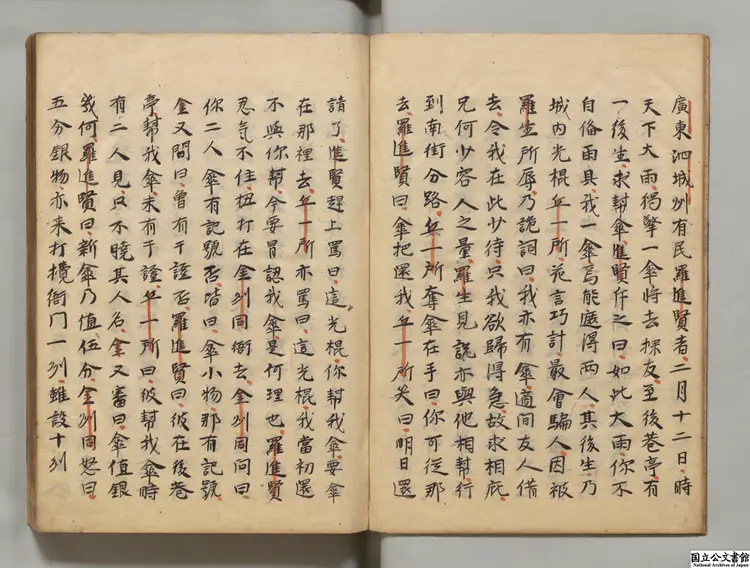 廣東泗城州有民羅進賢者二月十二日時
天下大雨獨擎一傘將去探友至後巷亭有
一後生求幫傘進賢斥之曰如此大雨你不
自俻雨具我一傘焉能庇得兩人其後生乃
城内光棍丘一所花言巧計最會騙人因被
羅生所辱乃詭詞曰我亦有傘適間友人借
去令我在此少待只我欲歸得急故求相庇
兄何少容人之量羅生見説亦與他相幫行
到南街分路丘一所奪傘在手曰你可從那
去羅進賢曰傘把還我丘一所笑曰明日還
請了進賢趕上罵曰這光棍你幫我傘要拿
在那裡去丘一所亦罵曰這光棍我當初還
不與你幫今要冒認我傘是何理也羅進賢
忍氣不住扭打在金州同衙去金州同問曰
你二人傘有記號否皆曰傘小物那有記號
金又問曰曾有干證否羅進賢曰彼在後巷
亭幫我傘未有干證丘一所曰彼幫我傘時
有二人見只不曉其人名金又審曰傘值銀
幾何羅進賢曰新傘乃值伍分金州同怒曰
五分銀物亦来打攪衙門一州雖設十州
国立公文書館
National Archives of Japan